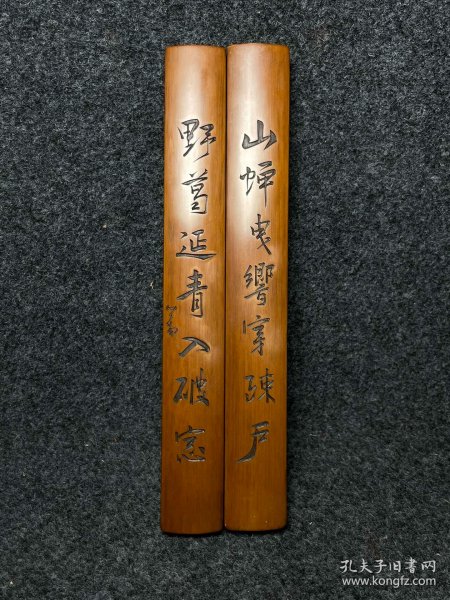 山蝉曳響穿疎戸
野蔓延青入破窓
孔夫子旧书网
www.kongfz.com